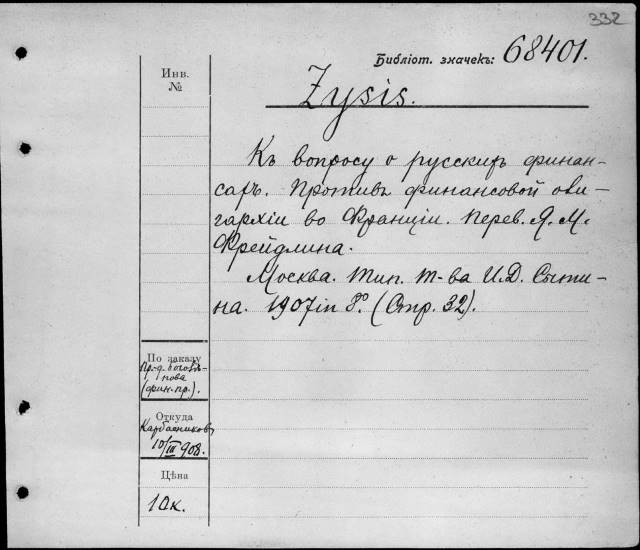 332
Библіот. значекъ: 68401.
Инв.
№
Zysis.
Къ вопросу о русскихъ финан-
сахъ. Противъ финансовой оли-
гархіи во Франціи. Перев. Я. М.
Фрейдлина.
Москва. Тип. Т-ва И.Д. Сыти-
на. 1907 in 8º. (Стр. 32).
По заказу
Пр-д. Боголѣ-
пова
(фин. пр.).
Откуда
Карбасниковъ
10/III 908.
Цѣна
10к.